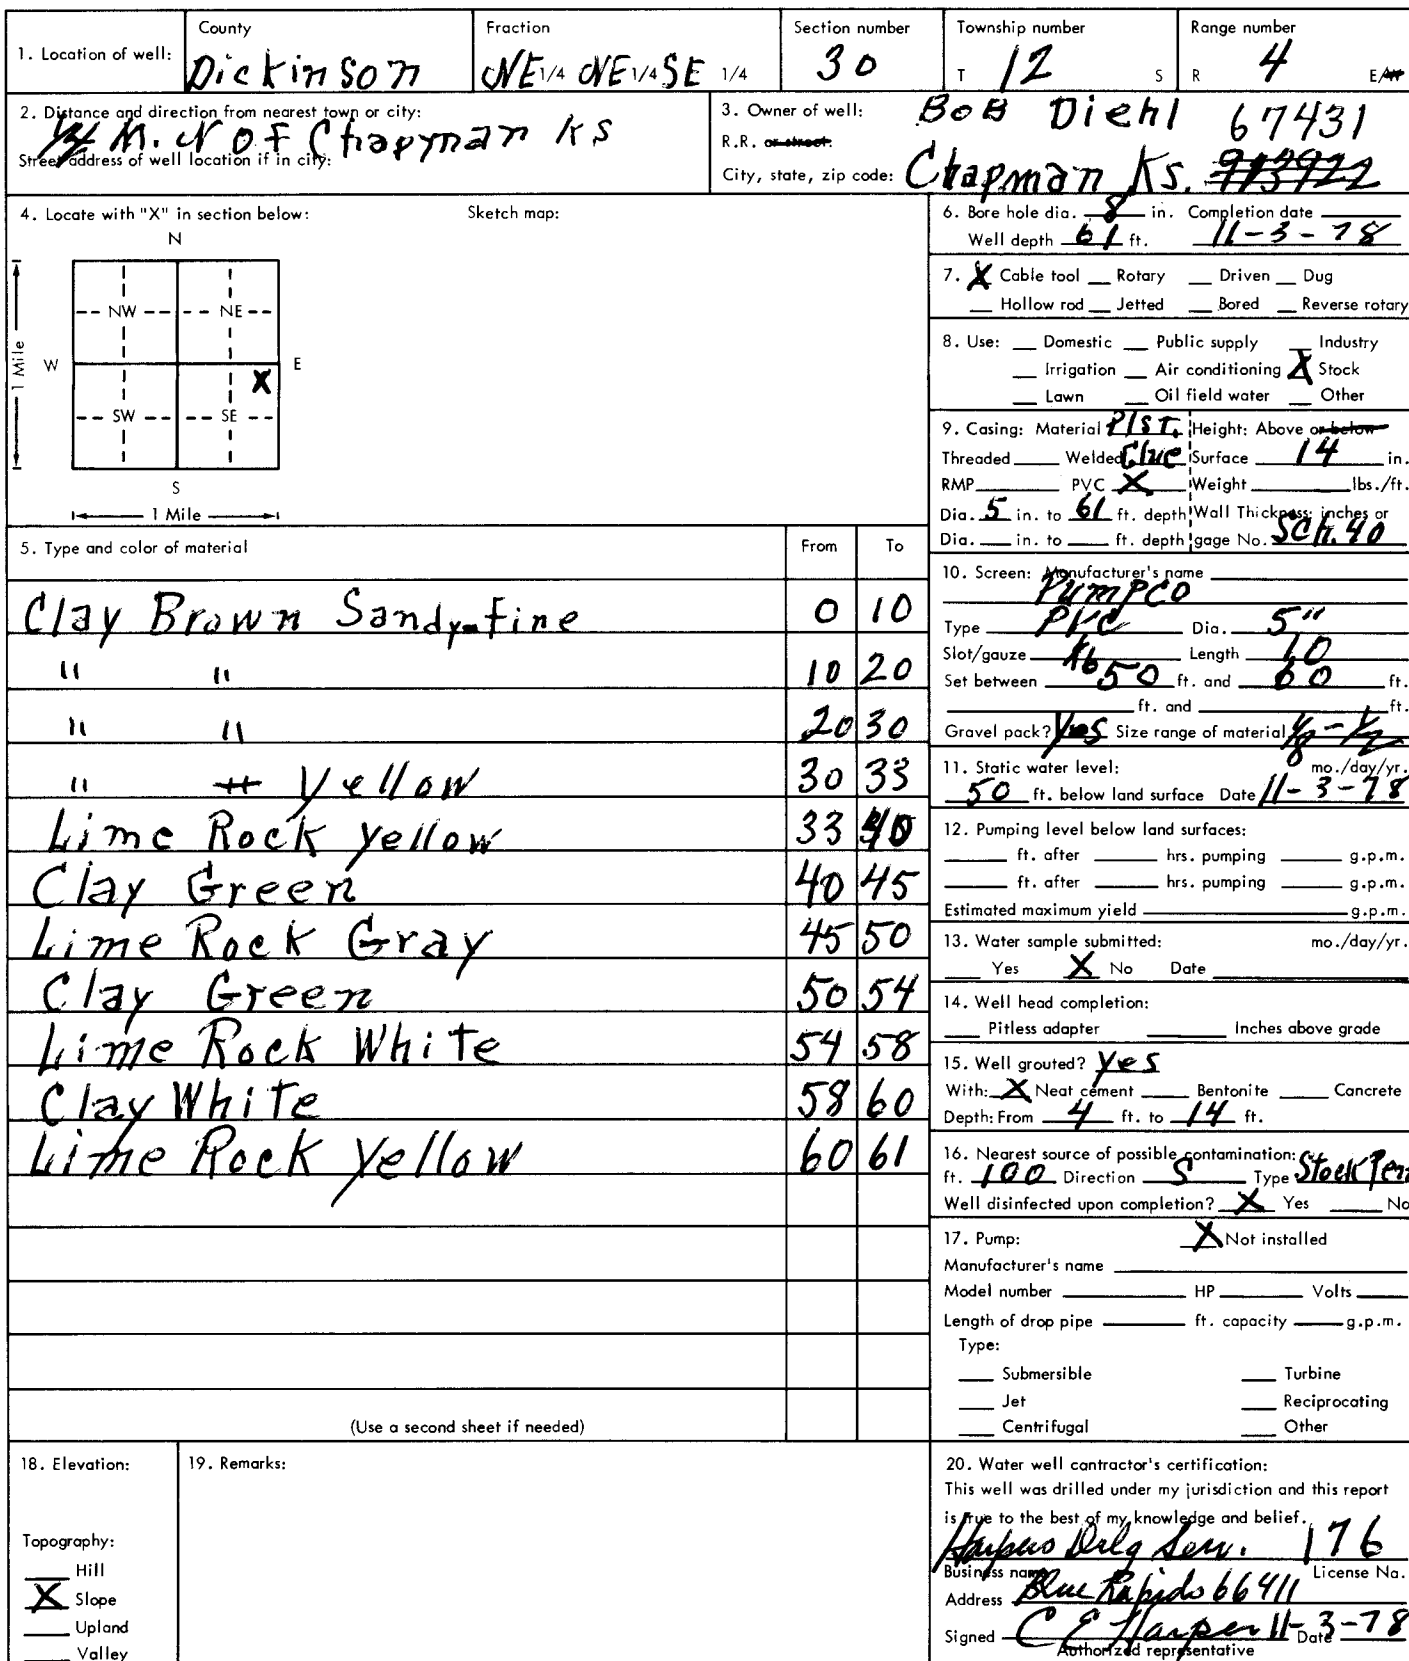 1. Location of well: County Dickinson Fraction NE 1/4 NE 1/4 SE 1/4 Section number 30 Township number T 12 S Range number R 4 E/W
2. Distance and direction from nearest town or city:
M. N OF Chapman KS
Street address of well location if in city:
3. Owner of well: Bob Diehl
R.R. or street: 67431
City, state, zip code: Chapman Ks. 913922
4. Locate with "X" in section below: Sketch map:
N
NW NE
W E
X
SW SE
S
1 Mile
1 Mile
5. Type and color of material From To
Clay Brown Sandy-fine 0 10
" " 10 20
" " 20 30
" " Yellow 30 33
Lime Rock yellow 33 40
Clay Green 40 45
Lime Rock Gray 45 50
Clay Green 50 54
Lime Rock White 54 58
Clay White 58 60
Lime Rock Yellow 60 61
(Use a second sheet if needed)
6. Bore hole dia. 8 in. Completion date
Well depth 61 ft. 11-3-78
7. X Cable tool Rotary Driven Dug
Hollow rod Jetted Bored Reverse rotary
8. Use: Domestic Public supply Industry
Irrigation Air conditioning X Stock
Lawn Oil field water Other
9. Casing: Material Plst. Height: Above or below
Threaded Welded Glue Surface 14 in.
RMP PVC X Weight lbs./ft.
Dia. 5 in. to 61 ft. depth Wall Thickness: inches or
Dia. in. to ft. depth gage No. Sch. 40
10. Screen: Manufacturer's name
Pumpco
Type PVC Dia. 5"
Slot/gauze Length 10
Set between 50 ft. and 60 ft.
ft. and ft.
Gravel pack? Yes Size range of material 1/8 - 1/2
11. Static water level: mo./day/yr.
50 ft. below land surface Date 11-3-78
12. Pumping level below land surfaces:
ft. after hrs. pumping g.p.m.
ft. after hrs. pumping g.p.m.
Estimated maximum yield g.p.m.
13. Water sample submitted: mo./day/yr.
Yes X No Date
14. Well head completion:
Pitless adapter Inches above grade
15. Well grouted? yes
With: X Neat cement Bentonite Concrete
Depth: From 4 ft. to 14 ft.
16. Nearest source of possible contamination:
ft. 100 Direction S Type Stock Pen
Well disinfected upon completion? X Yes No
17. Pump: X Not installed
Manufacturer's name
Model number HP Volts
Length of drop pipe ft. capacity g.p.m.
Type:
Submersible Turbine
Jet Reciprocating
Centrifugal Other
18. Elevation:
Topography:
Hill
X Slope
Upland
Valley
19. Remarks:
20. Water well contractor's certification:
This well was drilled under my jurisdiction and this report
is true to the best of my knowledge and belief.
Harpers Drlg Serv. 176
Business name License No.
Address Blue Rapids 66411
Signed C E Harper 11-3-78 Date
Authorized representative